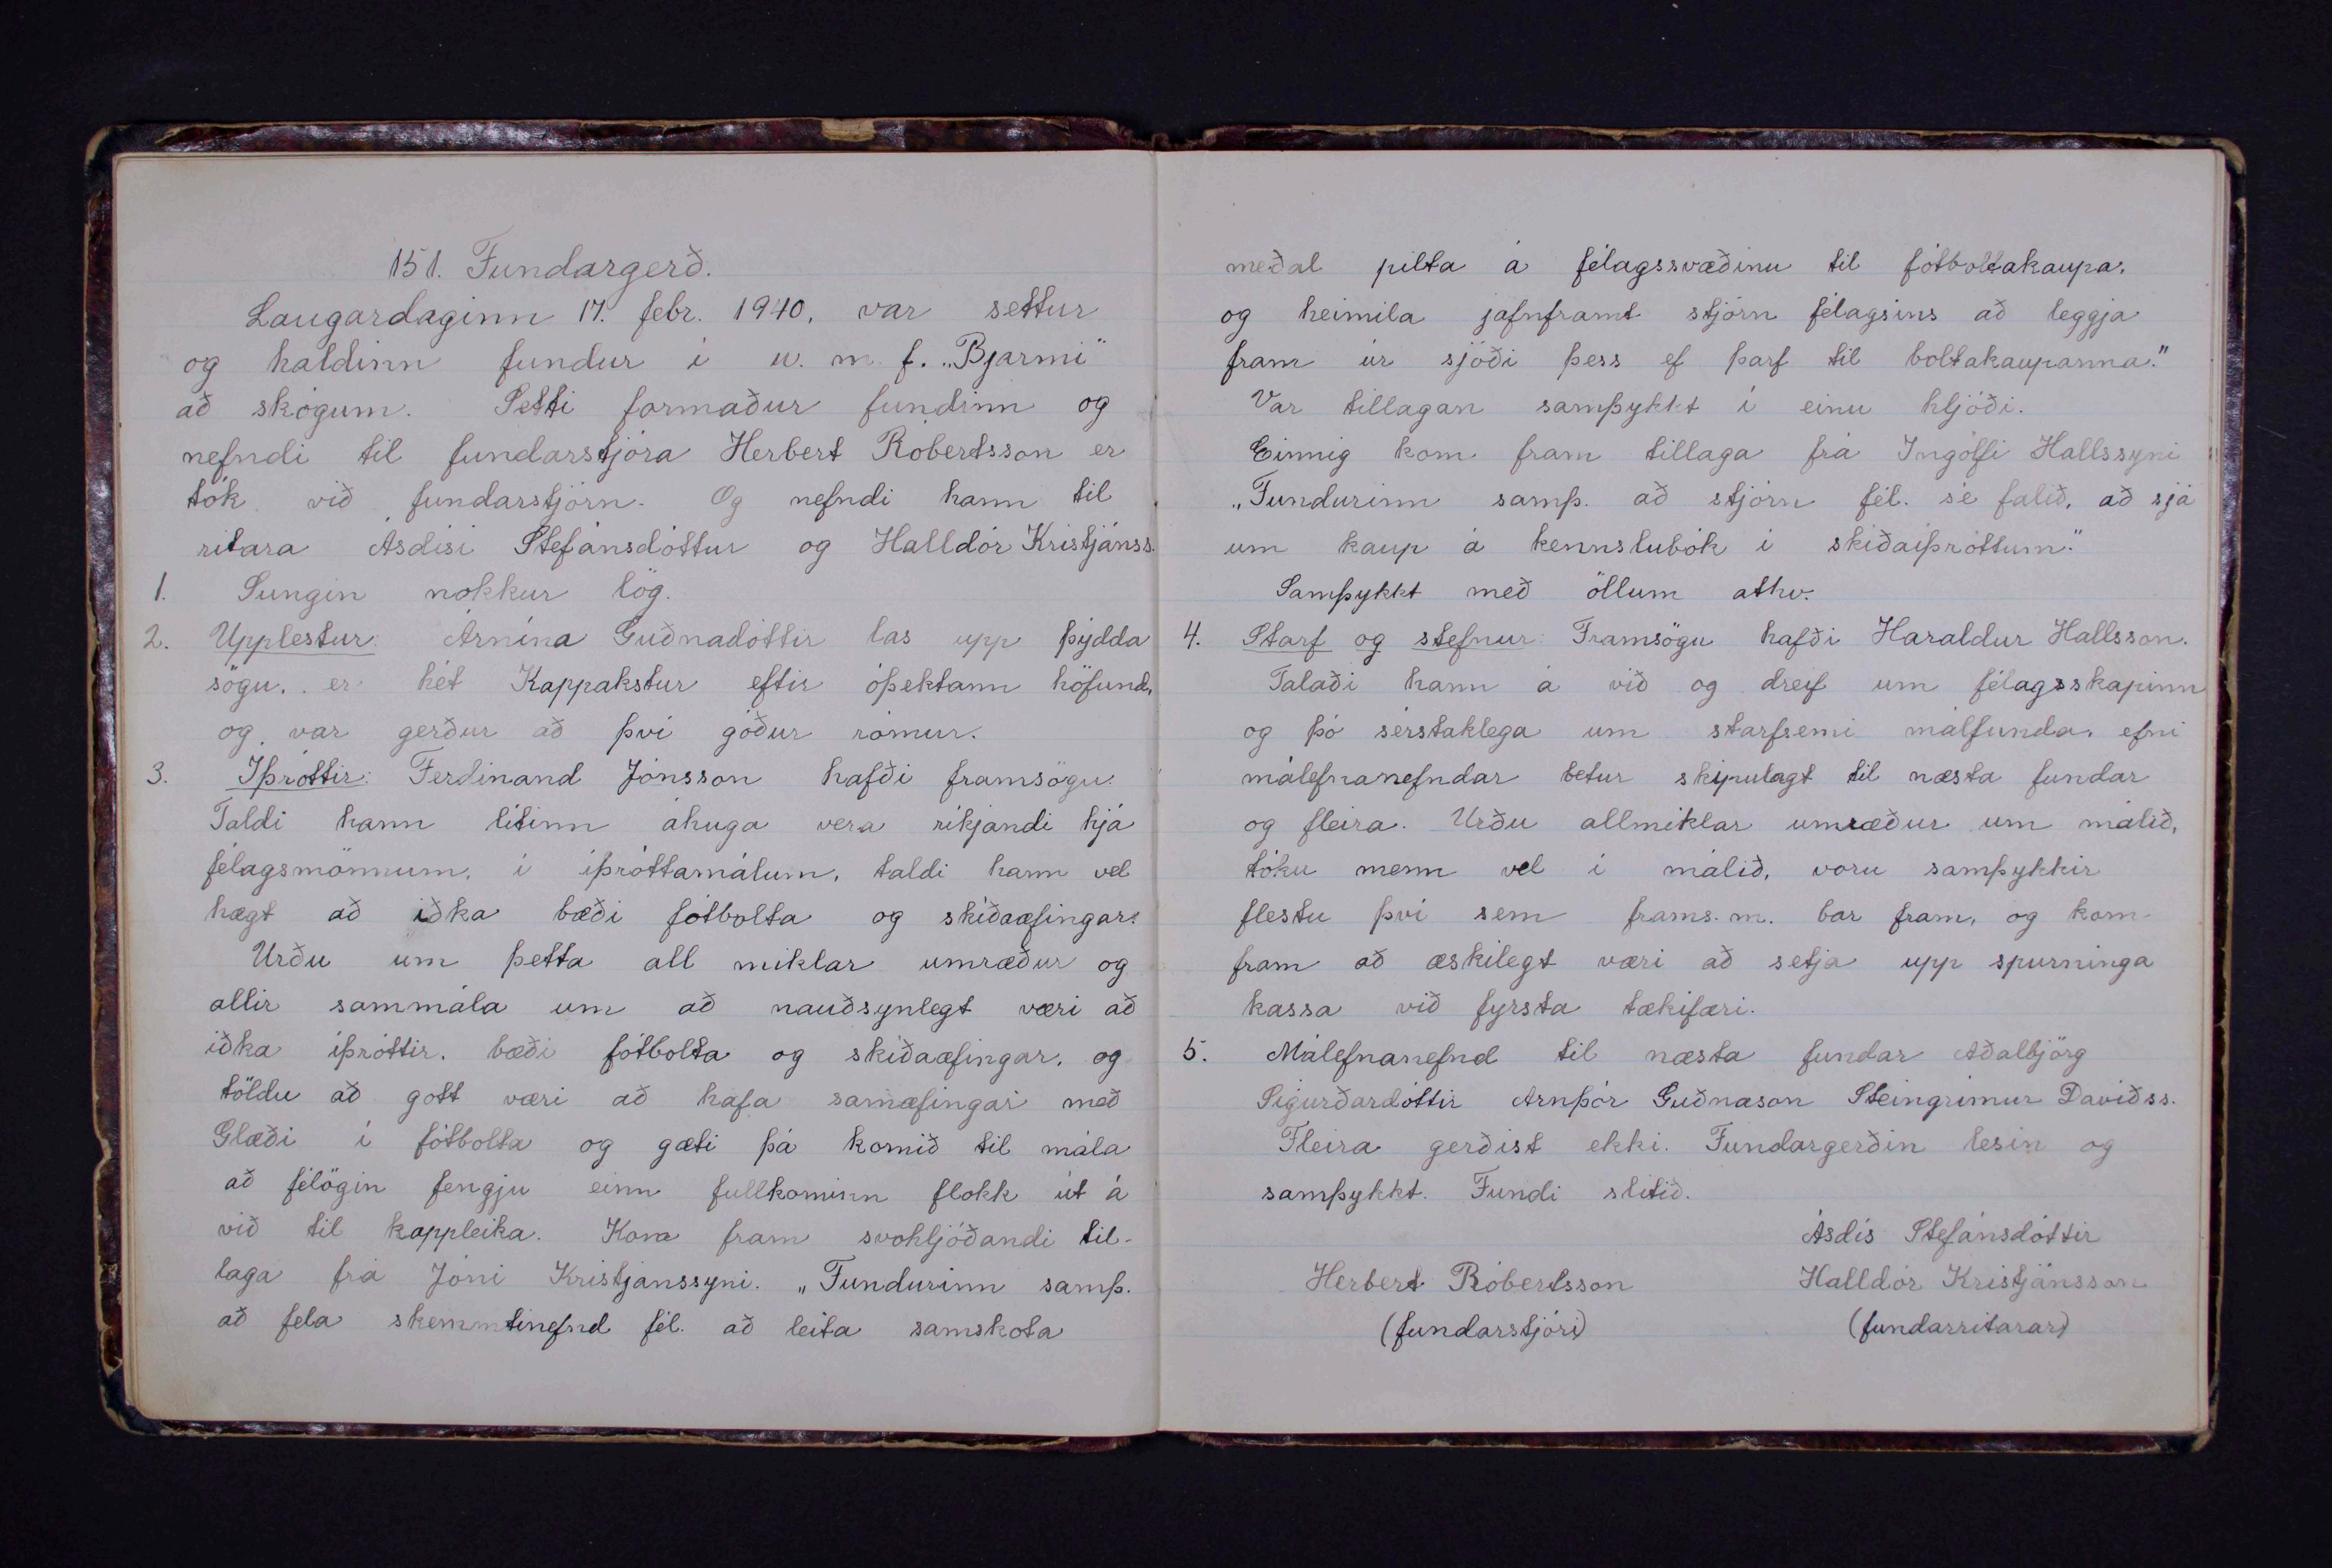 151. Fundargerð.
Laugardaginn 17. febr. 1940, var settur
og haldinn fundur í u. m. f. „Bjarmi"
að skógum. Setti formaður fundinn og
nefndi til fundarstjóra Herbert Róbertsson er
tók við fundarstjórn. Og nefndi hann til
ritara Ásdísi Stefánsdóttur og Halldór Kristjánss.
1. Sungin nokkur lög.
2. Upplestur: Arnína Guðnadóttir las upp þýdda
sögu, er hét Kappakstur eftir óþektann höfund,
og var gerður að því góður rómur.
3. Íþróttir: Ferdinand Jónsson hafði framsögu.
Taldi hann lítinn áhuga vera ríkjandi hjá
félagsmönnum, í íþróttamálum, taldi hann vel
hægt að iðka bæði fótbolta og skíðaæfingar.
Urðu um þetta all miklar umræður og
allir sammála um að nauðsynlegt væri að
iðka íþróttir, bæði fótbolta og skíðaæfingar, og
töldu að gott væri að hafa samæfingar með
Glæði í fótbolta og gæti þá komið til mála
að félögin fengju einn fullkominn flokk út á
við til kappleika. Kom fram svohljóðandi til-
laga frá Jóni Kristjánssyni. „Fundurinn samþ.
að fela skemmtinefnd fél. að leita samskota
meðal pilta á félagssvæðinu til fótboltakaupa,
og heimila jafnframt stjórn félagsins að leggja
fram úr sjóði þess ef þarf til boltakaupanna."
Var tillagan samþykkt í einu hljóði.
Einnig kom fram tillaga frá Ingólfi Hallssyni
„Fundurinn samþ. að stjórn fél. sé falið, að sjá
um kaup á kennslubók í skíðaíþróttum."
Samþykkt með öllum athv.
4. Starf og stefnur: Framsögu hafði Haraldur Hallsson.
Talaði hann á við og dreif um félagsskapinn
og þó sérstaklega um starfsemi málfunda, efni
málefnanefndar betur skipulagt til næsta fundar
og fleira. Urðu allmiklar umræður um málið,
tóku menn vel í málið, voru samþykkir
flestu því sem frams.m. bar fram, og kom
fram að æskilegt væri að setja upp spurninga
kassa við fyrsta tækifæri.
5. Málefnanefnd til næsta fundar Aðalbjörg
Sigurðardóttir Arnþór Guðnason Steingrímur Davíðss.
Fleira gerðist ekki. Fundargerðin lesin og
samþykkt. Fundi slitið.
Ásdís Stefánsdóttir
Herbert Róbertsson Halldór Kristjánsson
(fundarstjóri) (fundarritarar)